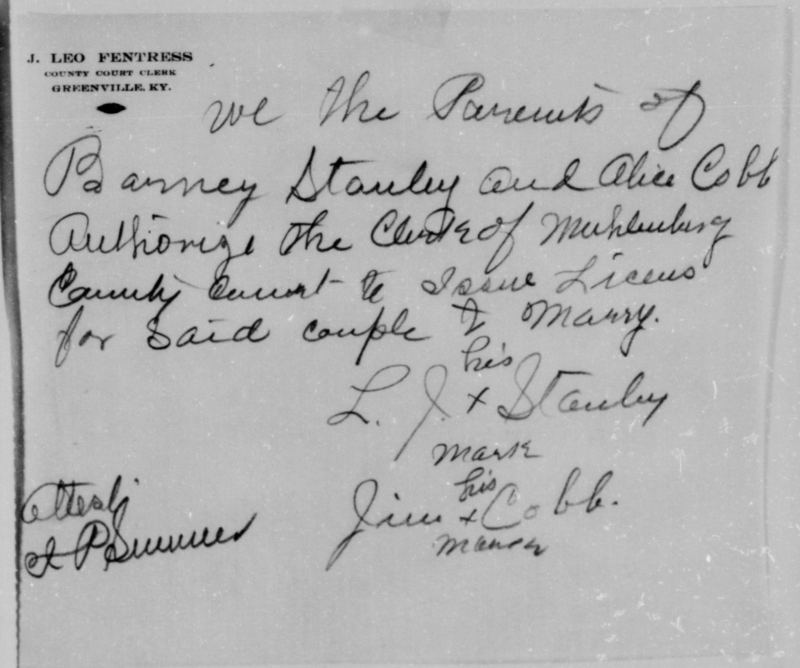 J. LEO FENTRESS
COUNTY COURT CLERK
GREENVILLE, KY.
We the Parents of
Barney Stanley and Alice Cobb
Authorize the Clerk of Muhlenburg
County Court to Issue Licens
for Said couple to Marry.
his
L. J. x Stanley
mark
his
Jim x Cobb.
Attest